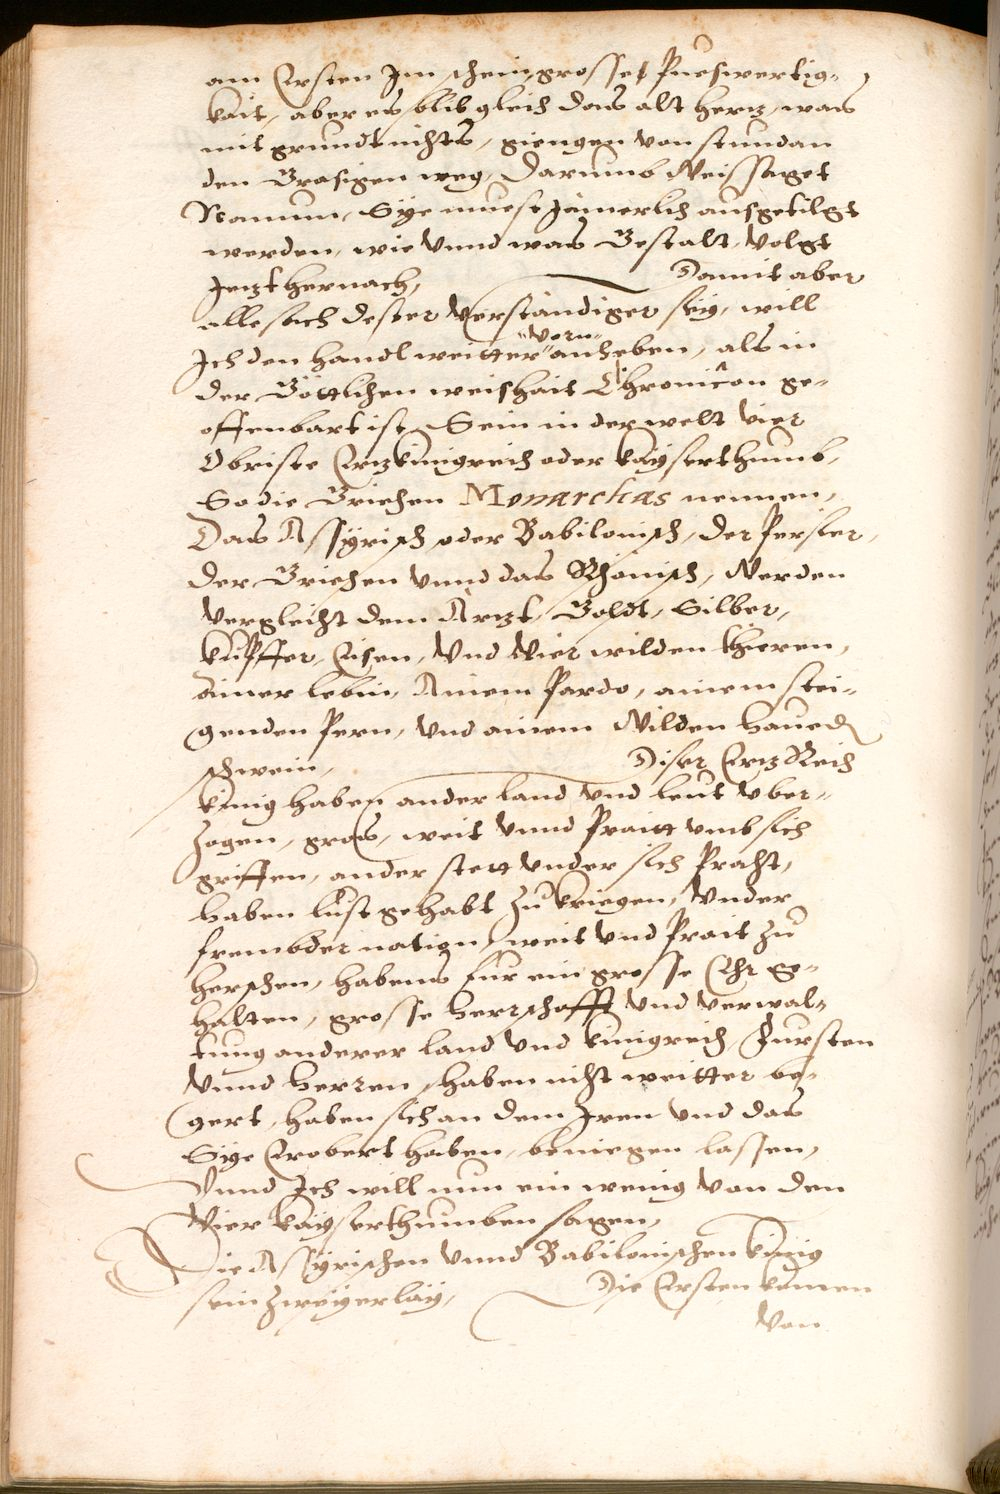 am Ersten Im schein grosse Pueswertig-
kait, aber es blib gleich das alt hertz, was
mit grundt nichts, giengen von stundan
den Vorigen weg, Darumb Weissaget
Naumm, Sÿe muest Jämerlich ausgetilgt
werden, wie vnnd was Gestalt, volgt
Jetzt hernach, Damit aber
alle sach dester verständiger seÿ, will
Ich den handl weitter vorn anheben, als in
der Göttlichen weishait Chronicon ge-
offenbart ist, Sein in der welt vier
Obriste Ertzkünigreich oder kaÿserthumb,
So die Griechen Monarchas nennen,
Das Assÿrisch oder Babilonisch, der Persier,
der Griechen vnnd das Rhömisch, Werden
vergleicht dem Artzt, Goldt, Silber,
kupffer, Eisen, Vnd Vier wilden thieren,
ainer lebin, Ainem Pardo, ainem stei-
genden Pern, vnd ainem Wilden haued
schwein, Diser Ertz Reich
künig haben ander land vnd leut vber-
zogen, gros, weit vnnd Praitt vmb sich
griffen, ander stett vnder sich Pracht,
haben lust gehabt zu kriegen, vnder
frembder nation, weit vnd Prait zu
herschen, habens fur ein grosse Ehr ge-
halten, grosse herrschafft vnd verwal-
tung anderer land vnd künigreich, Fürsten
vnnd herren, haben nicht weitter be-
gert, haben sich an dem Iren vnd das
Sÿe Erobert haben, beniegen lassen,
Vnnd Ich will nun ein wenig von den
Vier kaÿserthumben sagen,
Die Assÿrischen vnnd Babilonischen künig
sein zweÿerlaÿ, Die Ersten kumen
von